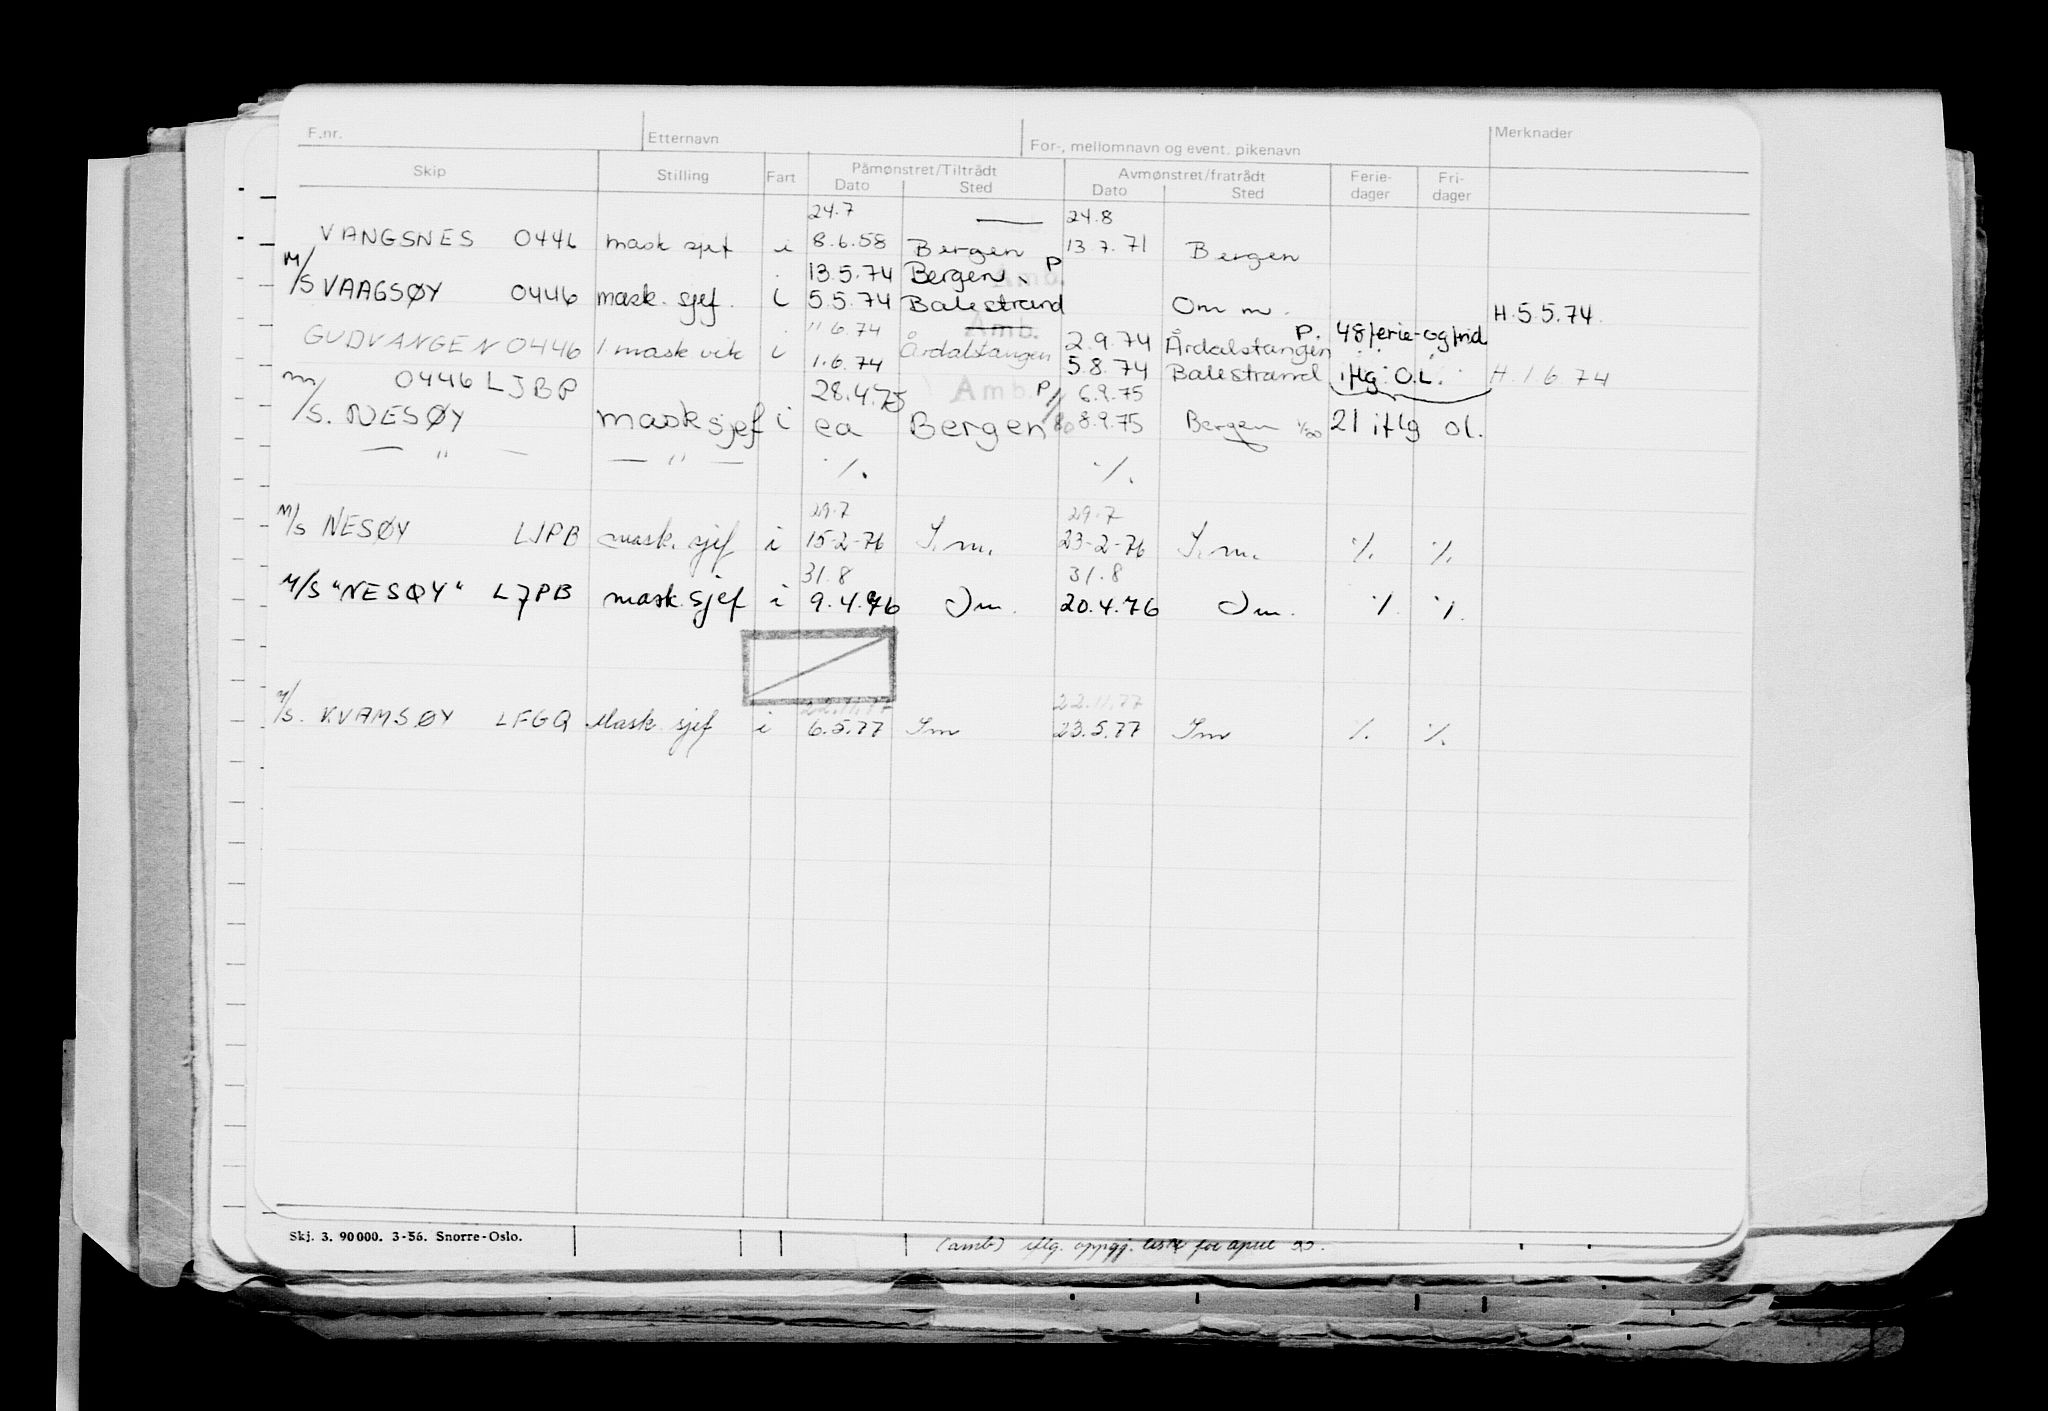 F.nr. Etternavn For-, mellomnavn og event. pikenavn Merknader
Skip Stilling Fart Påmønstret/Tiltrådt Avmønstret/fratrådt Ferie- Fri-
Dato Sted Dato Sted dager dager
24.7 — 24.8
VANGSNES 0446 mask sjef i 8.6.58 Bergen 13.7.71 Bergen
13.5.74 Bergen P
Amb.
M/S VAAGSØY 0446 mask. sjef. i 5.5.74 Balestrand Om m. H.5.5.74.
11.6.74 Amb. P. 48 ferie- og frid
GUDVANGEN 0446 1 mask vik i Årdalstangen 2.9.74 Årdalstangen
1.6.74 5.8.74 Balestrand iflg. O.L. H.1.6.74
m/S. 0446 LJBP 28.4.75 Amb. P 6.9.75
NESØY mask sjef i ea Bergen 8.9.75 Bergen 21 iflg ol.
— " — — " — ./. ./.
29.7 29.7
M/S NESØY LJPB mask. sjef i 15-2-76 I.m. 23-2-76 I.m. ./. ./.
31.8 31.8
M/S "NESØY" LJPB mask. sjef i 9.4.76 Im. 20.4.76 Im. ./. ./.
22.11.77 22.11.77
M/S. KVAMSØY LFGQ Mask. sjef i 6.5.77 Im 23.5.77 Im ./. ./.
Skj. 3. 90 000. 3-56. Snorre-Oslo.
(amb) iflg. oppgj. liste for april